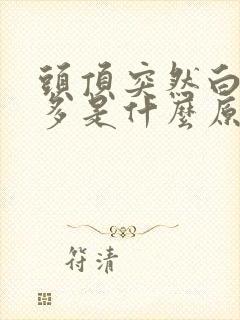 頭頂突然白
多是什麼原
符清